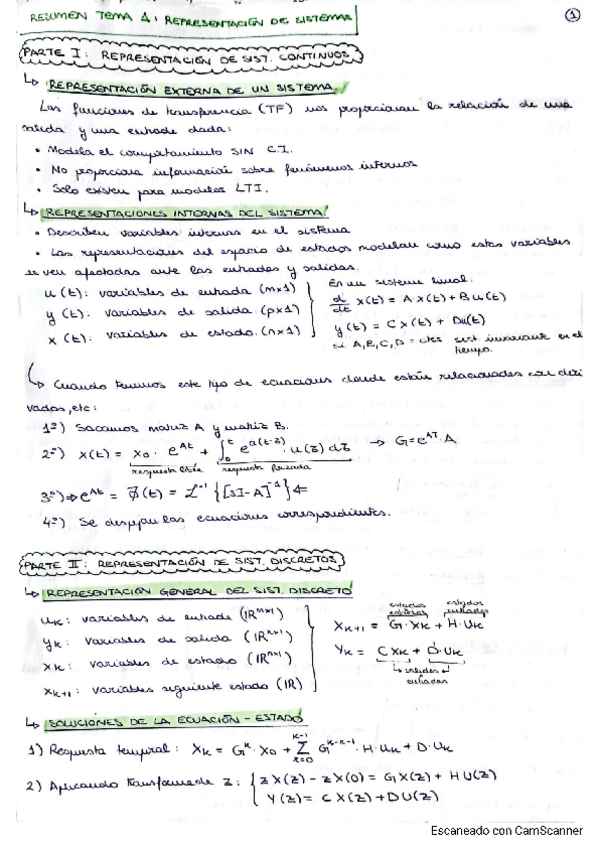 RESUMEN TEMA 1: REPRESENTACIÓN DE SISTEMAS
1
PARTE I: REPRESENTACIÓN DE SIST. CONTINUOS
↳ REPRESENTACIÓN EXTERNA DE UN SISTEMA
Las funciones de transferencia (TF) nos proporcionan la relación de una
salida y una entrada dada:
• Modela el comportamiento SIN C.I.
• No proporciona información sobre fenómenos internos
• Solo existen para modelos LTI.
↳ REPRESENTACIONES INTERNAS DEL SISTEMA
• Describen variables internas en el sistema
• Las representaciones del espacio de estados modelan como estas variables
se ven afectadas ante las entradas y salidas.
u(t): variables de entrada (m×1)
y(t): variables de salida (p×1)
x(t): variables de estado (n×1)
En un sistema lineal:
d/dt x(t) = A·x(t) + Bu(t)
y(t) = Cx(t) + Du(t)
si A,B,C,D = ctes sist. invariante en el
tiempo.
↳ Cuando tenemos este tipo de ecuaciones donde están relacionadas con deri
vadas, etc:
1º) Sacamos matriz A y matriz B.
2º) x(t) = x₀ · e^At + ∫₀^t e^a(t-z) · u(z) dz → G=e^AT · A
respuesta libre respuesta forzada
3º) ⇒ e^At = Φ(t) = L⁻¹ {[sI-A]⁻¹} ⇐
4º) Se despejan las ecuaciones correspondientes.
PARTE II: REPRESENTACIÓN DE SIST. DISCRETOS
↳ REPRESENTACIÓN GENERAL DEL SIST. DISCRETO
uk: variables de entrada (IR^m×1)
yk: variables de salida (IR^n×1)
xk: variables de estado (IR^n×1)
xk+1: variables siguiente estado (IR)
estados estados
entradas
Xk+1 = G·Xk + H·Uk
Yk = CXk + D·Uk
↳ salidas
entradas
↳ SOLUCIONES DE LA ECUACIÓN-ESTADO
1) Respuesta temporal: Xk = G^k · X₀ + Σ G^k-r-1 · H·Uk + D·Uk
k-1
r=0
2) Aplicando transformada Z: { zX(z) - zX(0) = GX(z) + HU(z)
Y(z) = CX(z) + DU(z)
Escaneado con CamScanner